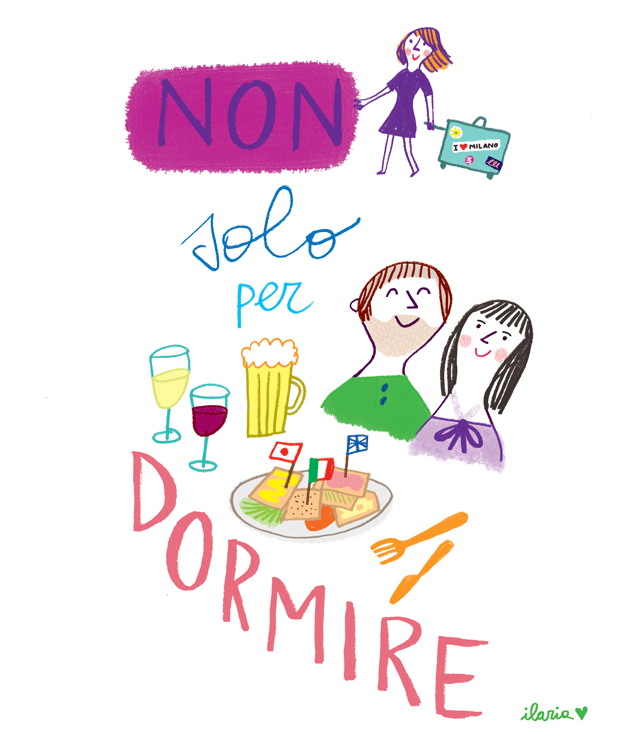 NON
I ♥ MILANO
solo
per
DORMIRE
ilaria ♥